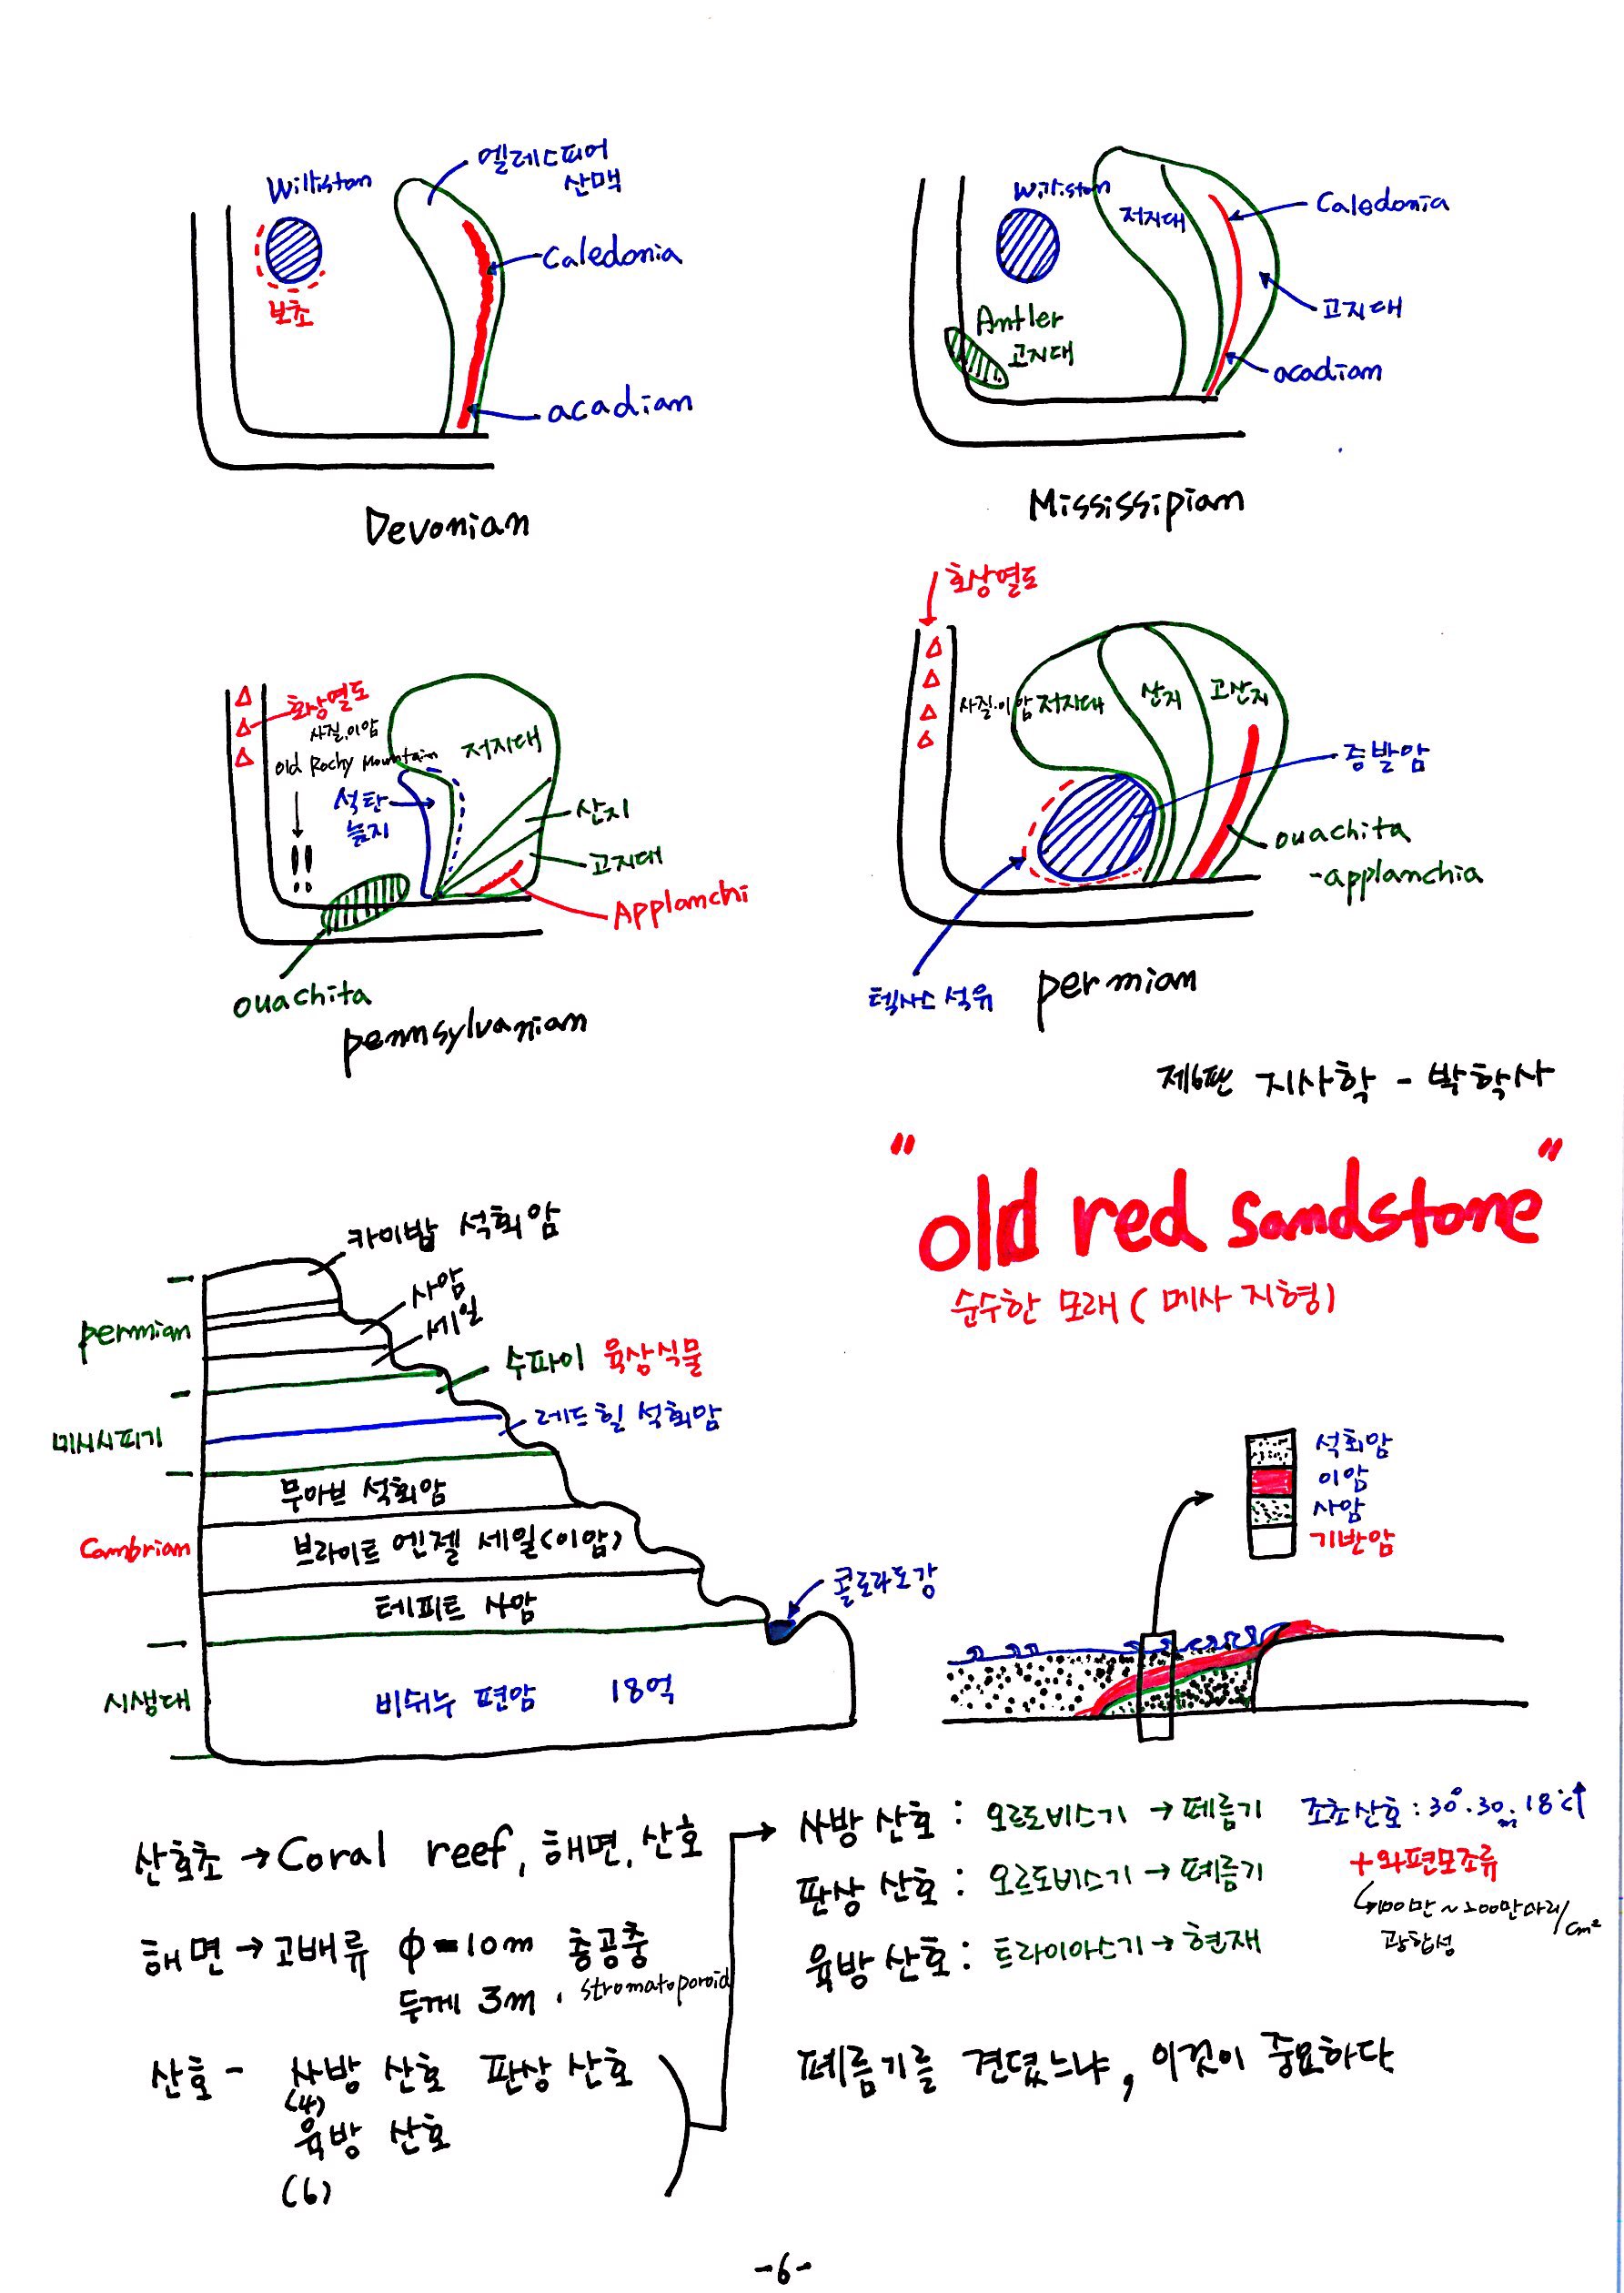 Williston
엘레스피어
산맥
Caledonia
보초
acadian
Devonian
Williston
저지대
Caledonia
고지대
Antler
고지대
acadian
Mississipian
화상열도
사질.이암
old Rochy Mountain
저지대
석탄
늪지
산지
고지대
Applanchi
ouachita
pennsylvanian
화상열도
사질.이암
저지대
산지
고산지
증발암
ouachita
-applanchia
텍사스 석유
permian
제6판 지사학 - 박학사
"old red sandstone"
순수한 모래 ( 메사 지형)
카이밥 석회암
사암
세일
permian
수파이 육상식물
레드힐 석회암
미시시피기
무아브 석회암
Cambrian
브라이트 엔젤 세일(이암)
테피트 사암
콜로라도강
시생대
비쉬누 편암 18억
석회암
이암
사암
기반암
산호초 → Coral reef, 해면, 산호
해면 → 고배류 ϕ=10m 층공충
두께 3m. stromatoporoid
산호 - 사방 산호 판상 산호
(4)
육방 산호
(6)
사방 산호 : 오르도비스기 → 페름기
판상 산호 : 오르도비스기 → 페름기
육방 산호 : 트라이아스기 → 현재
조초산호 : 30°. 30m. 18℃↑
+와편모조류
↳100만~200만마리/cm²
광합성
페름기를 견뎠느냐, 이것이 중요하다
-6-